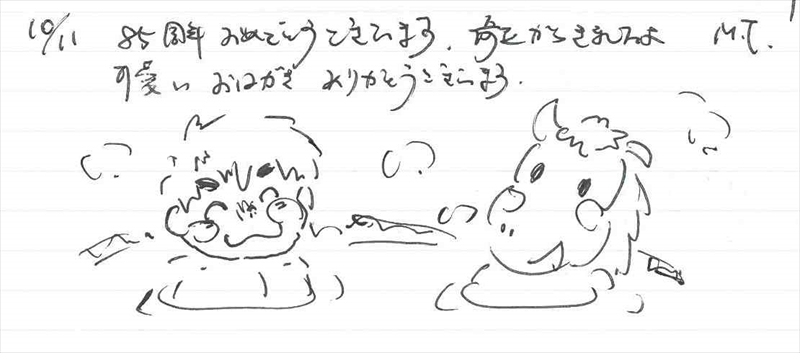 10/11 85周年 おめでとうございます. 奇しからきました M.T.
可愛い おはがき ありがとうございます.